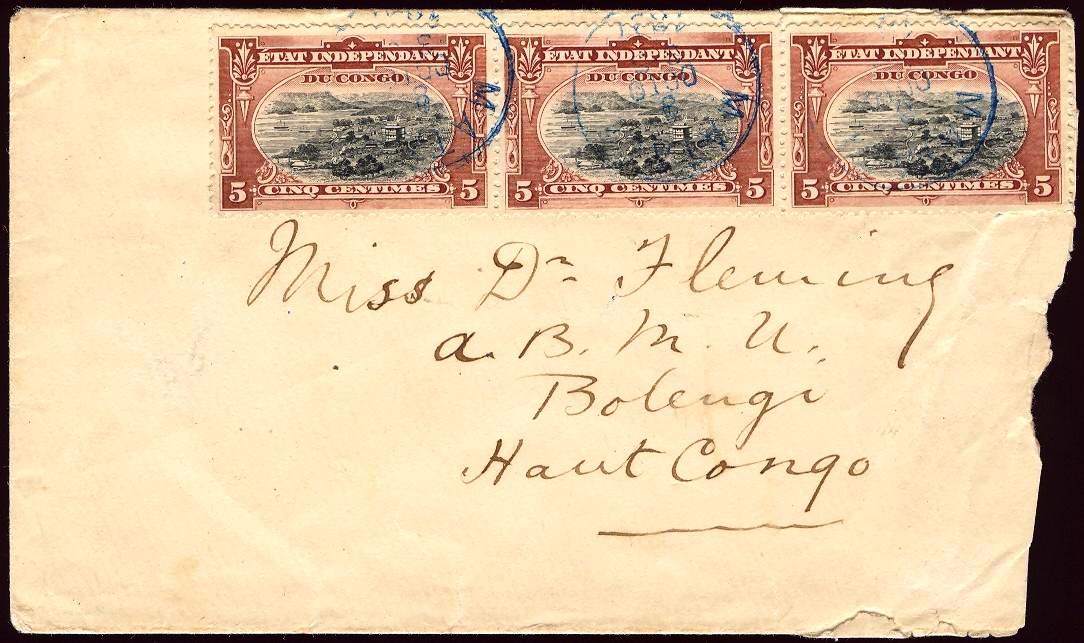 ÉTAT INDÉPENDANT
DU CONGO
5 CINQ CENTIMES 5
ÉTAT INDÉPENDANT
DU CONGO
5 CINQ CENTIMES 5
ÉTAT INDÉPENDANT
DU CONGO
5 CINQ CENTIMES 5
Miss Dr Fleming
A. B. M. U.
Bolengi
Haut Congo